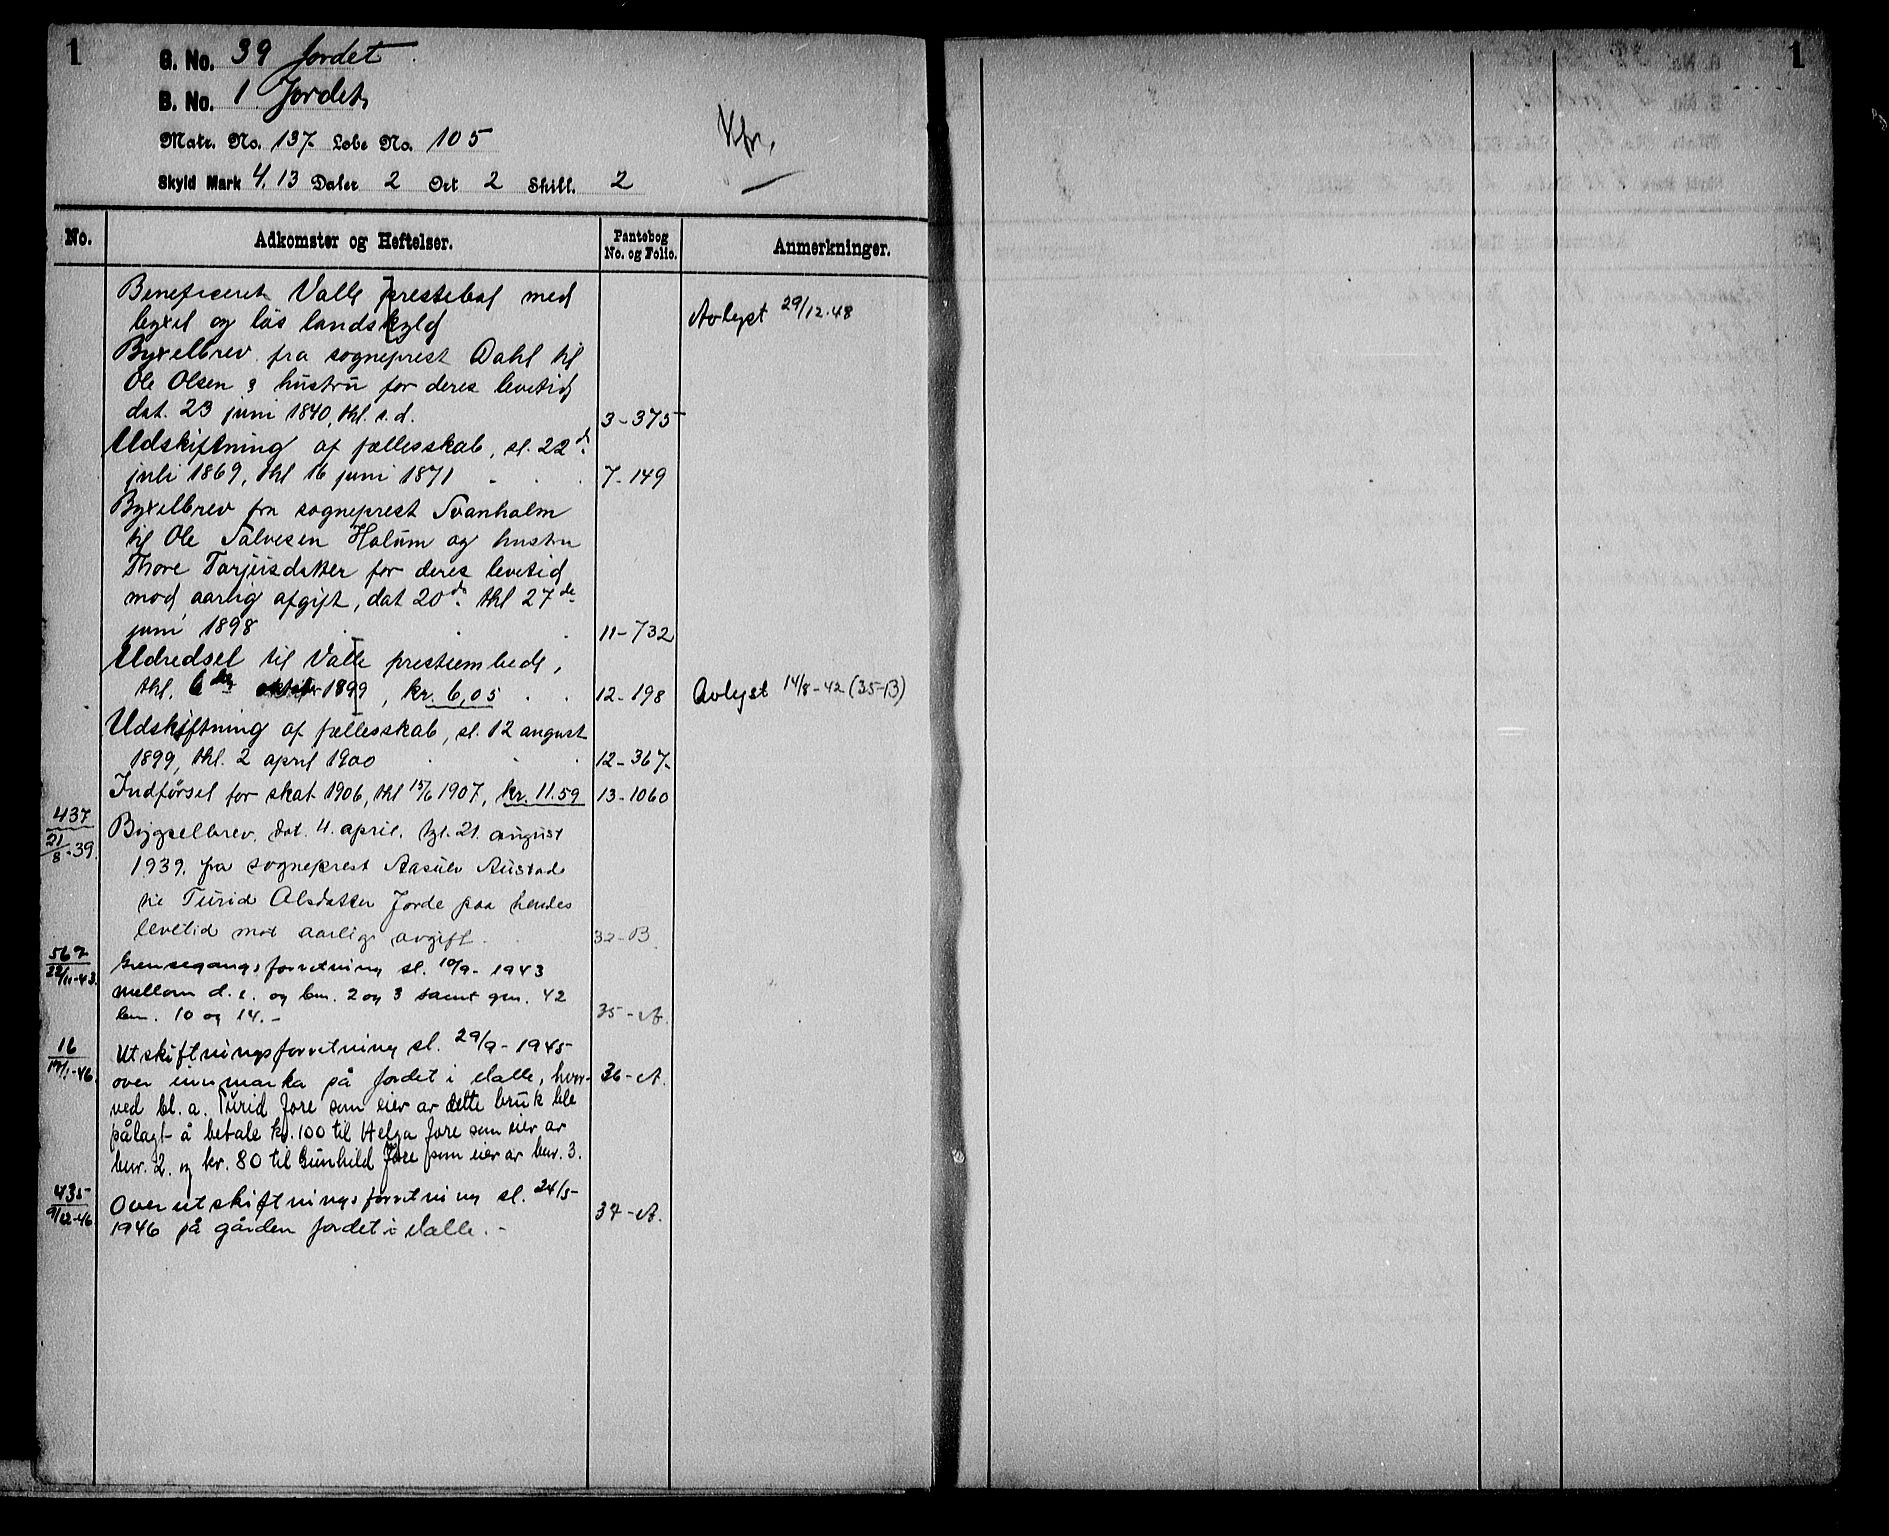 1
G. No. 39 Jordet
B. No. 1 Jordet
Matr. No. 137 Løbe No. 105
Skyld Mark 4.13 Daler 2 Ort 2 Skill. 2
No.
Adkomster og Heftelser.
Pantebog
No. og Folio.
Anmerkninger.
Beneficeret Valle prestebol med
bygsel og løs landskyld
Avlyst 29/12.48
Byxelbrev fra sogneprest Dahl til
Ole Olsen & hustru for deres levetid
dat. 23 juni 1840, thl. s.d. 3-375
Udskiftning af fællesskab, sl. 22de
juli 1869, thl 16 juni 1871 7-149
Byxelbrev fra sogneprest Svanholm
til Ole Salvesen Holum og hustru
Thore Tarjeisdatter for deres levetid
mod aarlig afgift, dat 20de thl 27de
juni 1898 11-732
Udredsel til Valle prestembede,
thl. 6te oktober 1899, kr. 6,05 12-198 Avlyst 14/8-42 (35-B)
Udskiftning af fællesskab, sl. 12 august
1899, thl. 2 april 1900 12-367
Indførsel for skat 1906, thl 15/6 1907, kr. 11.59 13-1060
437
21/8-39.
Bygselbrev, dat. 4. april, tgl. 21. august
1939, fra sogneprest Aasulv Austad
til Turid Olsdatter Jorde paa hendes
levetid mot aarlig avgift. 32-B.
567
22/11-43.
Grensegangsforretning sl. 10/9-1943
mellom d.e. og bnr. 2 og 3 samt gnr. 42
bnr. 10 og 14.- 35-A.
16
17/1-46.
Utskiftningsforretning sl. 29/9-1945
over innmarka på Jordet i Valle, hvor- 36-A.
ved bl.a. Turid Jore som eier av dette bruk ble
pålagt å betale kr. 100 til Helga Jore som eier av
bnr. 2. og kr. 80 til Gunhild Jore som eier av bnr. 3.
435
9/12-46
Overutskiftningsforretning sl. 24/5-
1946 på gården Jordet i Valle.- 37-A.
1